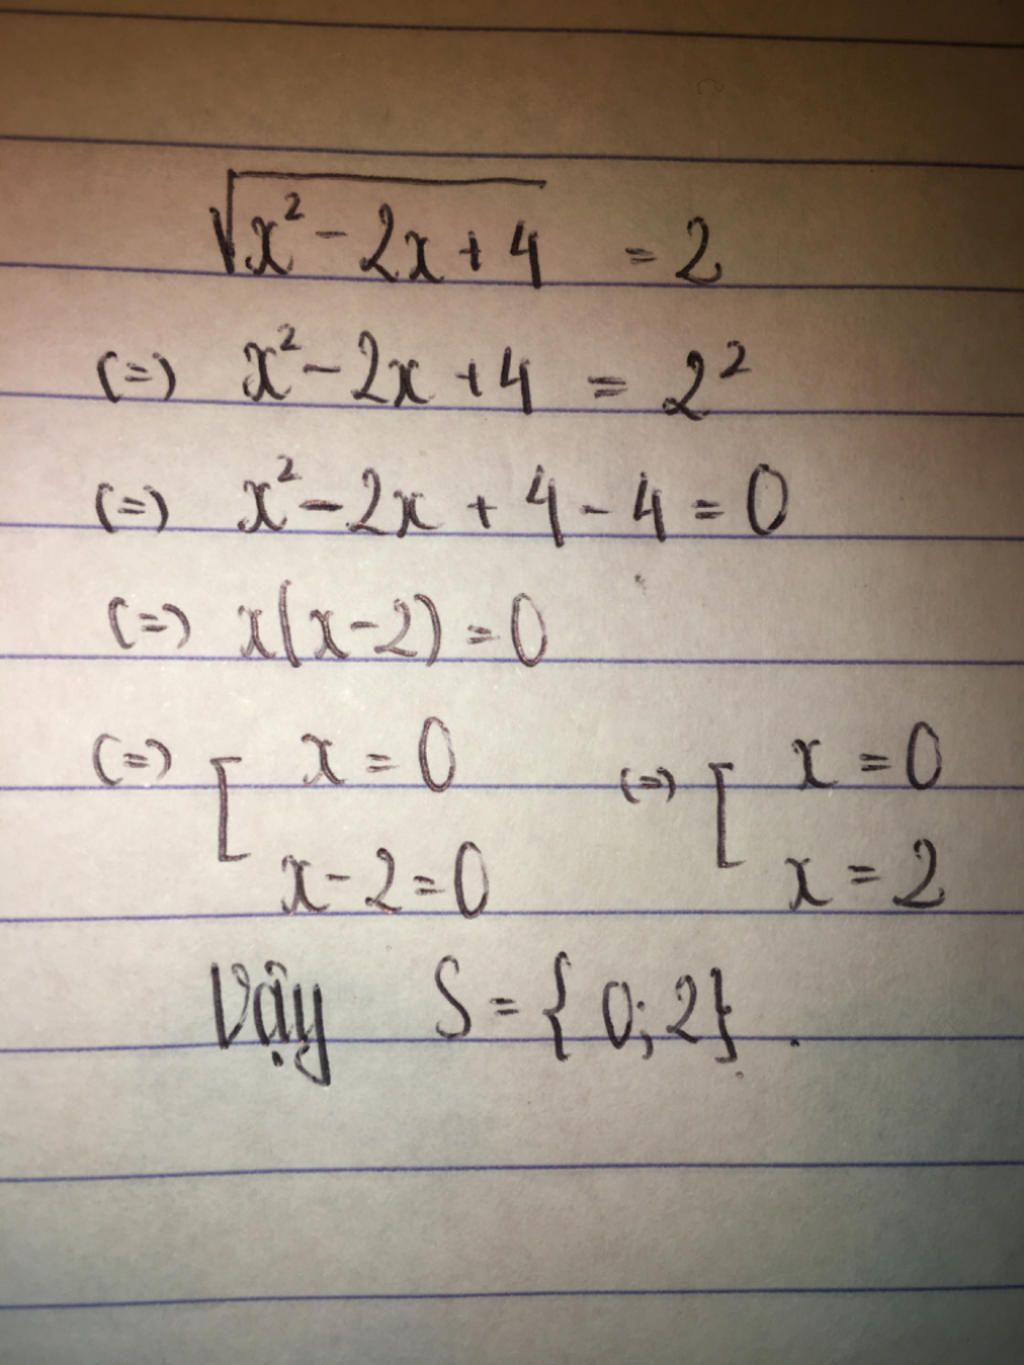 √(x² - 2x + 4) = 2
(=) x² - 2x + 4 = 2²
(=) x² - 2x + 4 - 4 = 0
(=) x(x - 2) = 0
(=) [ x = 0 (=) [ x = 0
x - 2 = 0 x = 2
Vậy S = { 0; 2} .